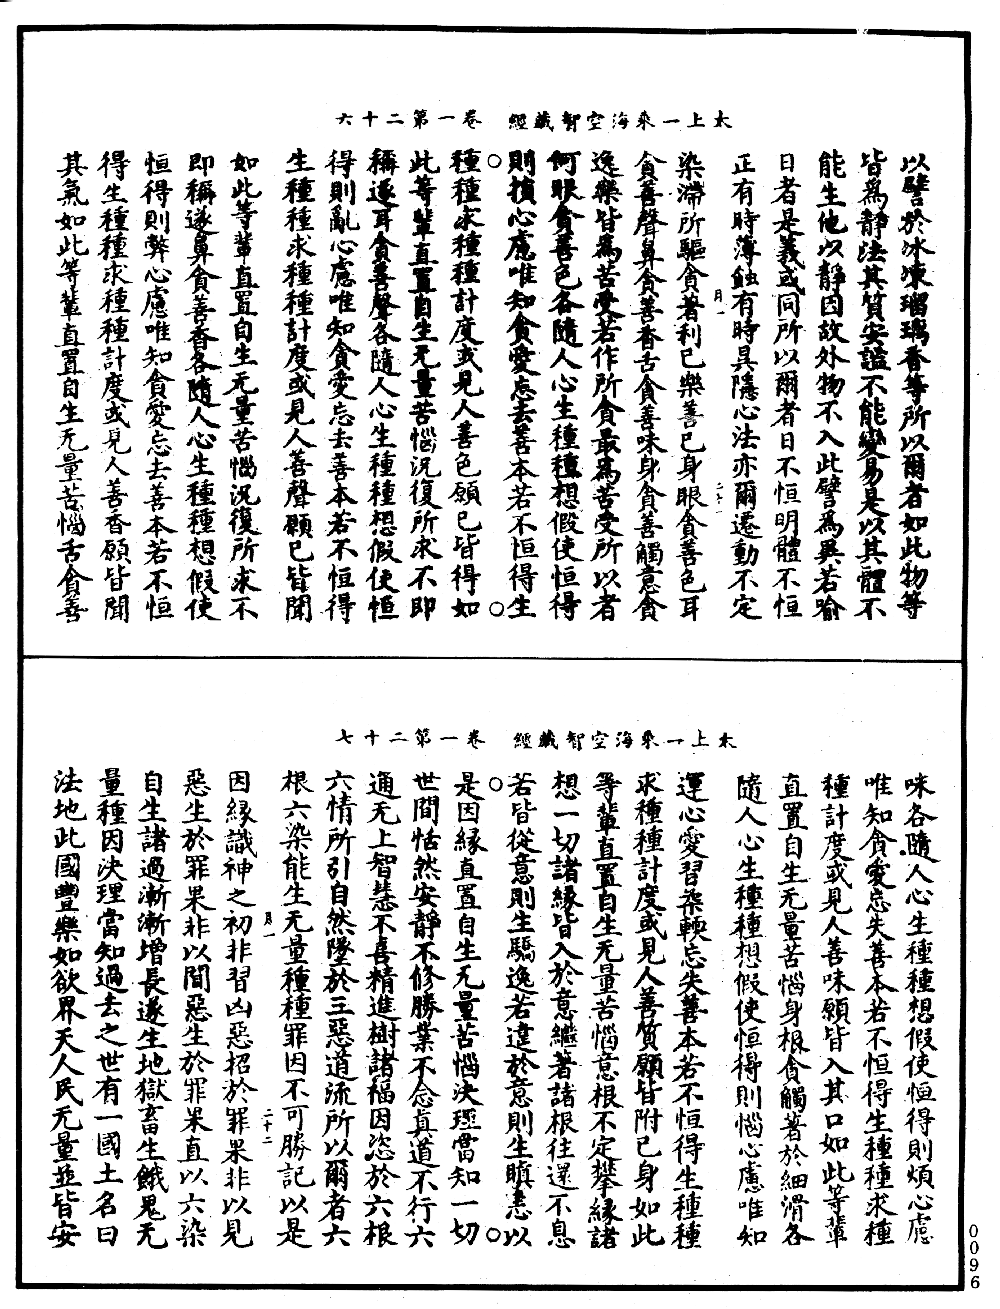 太上一乘海空智藏經　卷一第二十六
以譬於冰凍瑠璃香等所以爾者如此物等
皆爲靜法其質安謐不能變易是以其體不
能生他以靜因故外物不入此譬爲異若喻
日者是義或同所以爾者日不恒明體不恒
正有時薄蝕有時具隱心法亦爾遷動不定
月一　二十一
染滯所驅貪著利已樂善已身眼貪善色耳
貪善聲鼻貪善香舌貪善味身貪善觸意貪
逸樂皆爲苦受若作所貪最爲苦受所以者
何眼貪善色各隨人心生種種想假使恒得
則損心慮唯知貪愛忘去善本若不恒得生
種種求種種計度或見人善色願已皆得如
此等輩直置自生无量苦惱況復所求不即
稱遂耳貪善聲各隨人心生種種想假使恒
得則亂心慮唯知貪愛忘去善本若不恒得
生種種求種種計度或見人善聲願已皆聞
如此等輩直置自生无量苦惱況復所求不
即稱遂鼻貪善香各隨人心生種種想假使
恒得則弊心慮唯知貪愛忘去善本若不恒
得生種種求種種計度或見人善香願皆聞
其氣如此等輩直置自生无量苦惱舌貪善
太上一乘海空智藏經　卷一第二十七
味各隨人心生種種想假使恒得則煩心慮
唯知貪愛忘失善本若不恒得生種種求種
種計度或見人善味願皆入其口如此等輩
直置自生无量苦惱身根貪觸著於細滑各
隨人心生種種想假使恒得則惱心慮唯知
運心愛習染軟忘失善本若不恒得生種種
求種種計度或見人善質願皆附已身如此
等輩直置自生无量苦惱意根不定攀緣諸
想一切諸緣皆入於意繼著諸根往還不息
若皆從意則生驕逸若違於意則生瞋恚以
是因緣直置自生无量苦惱決理當知一切
世間恬然安靜不修勝業不念真道不行六
通无上智慧不喜精進樹諸福因恣於六根
六情所引自然墜於三惡道流所以爾者六
根六染能生无量種種罪因不可勝記以是
月一　二十二
因緣識神之初非習凶惡招於罪果非以見
惡生於罪果非以聞惡生於罪果直以六染
自生諸過漸漸增長遂生地獄畜生餓鬼无
量種因決理當知過去之世有一國土名曰
法地此國豐樂如欲界天人民无量並皆安
0096